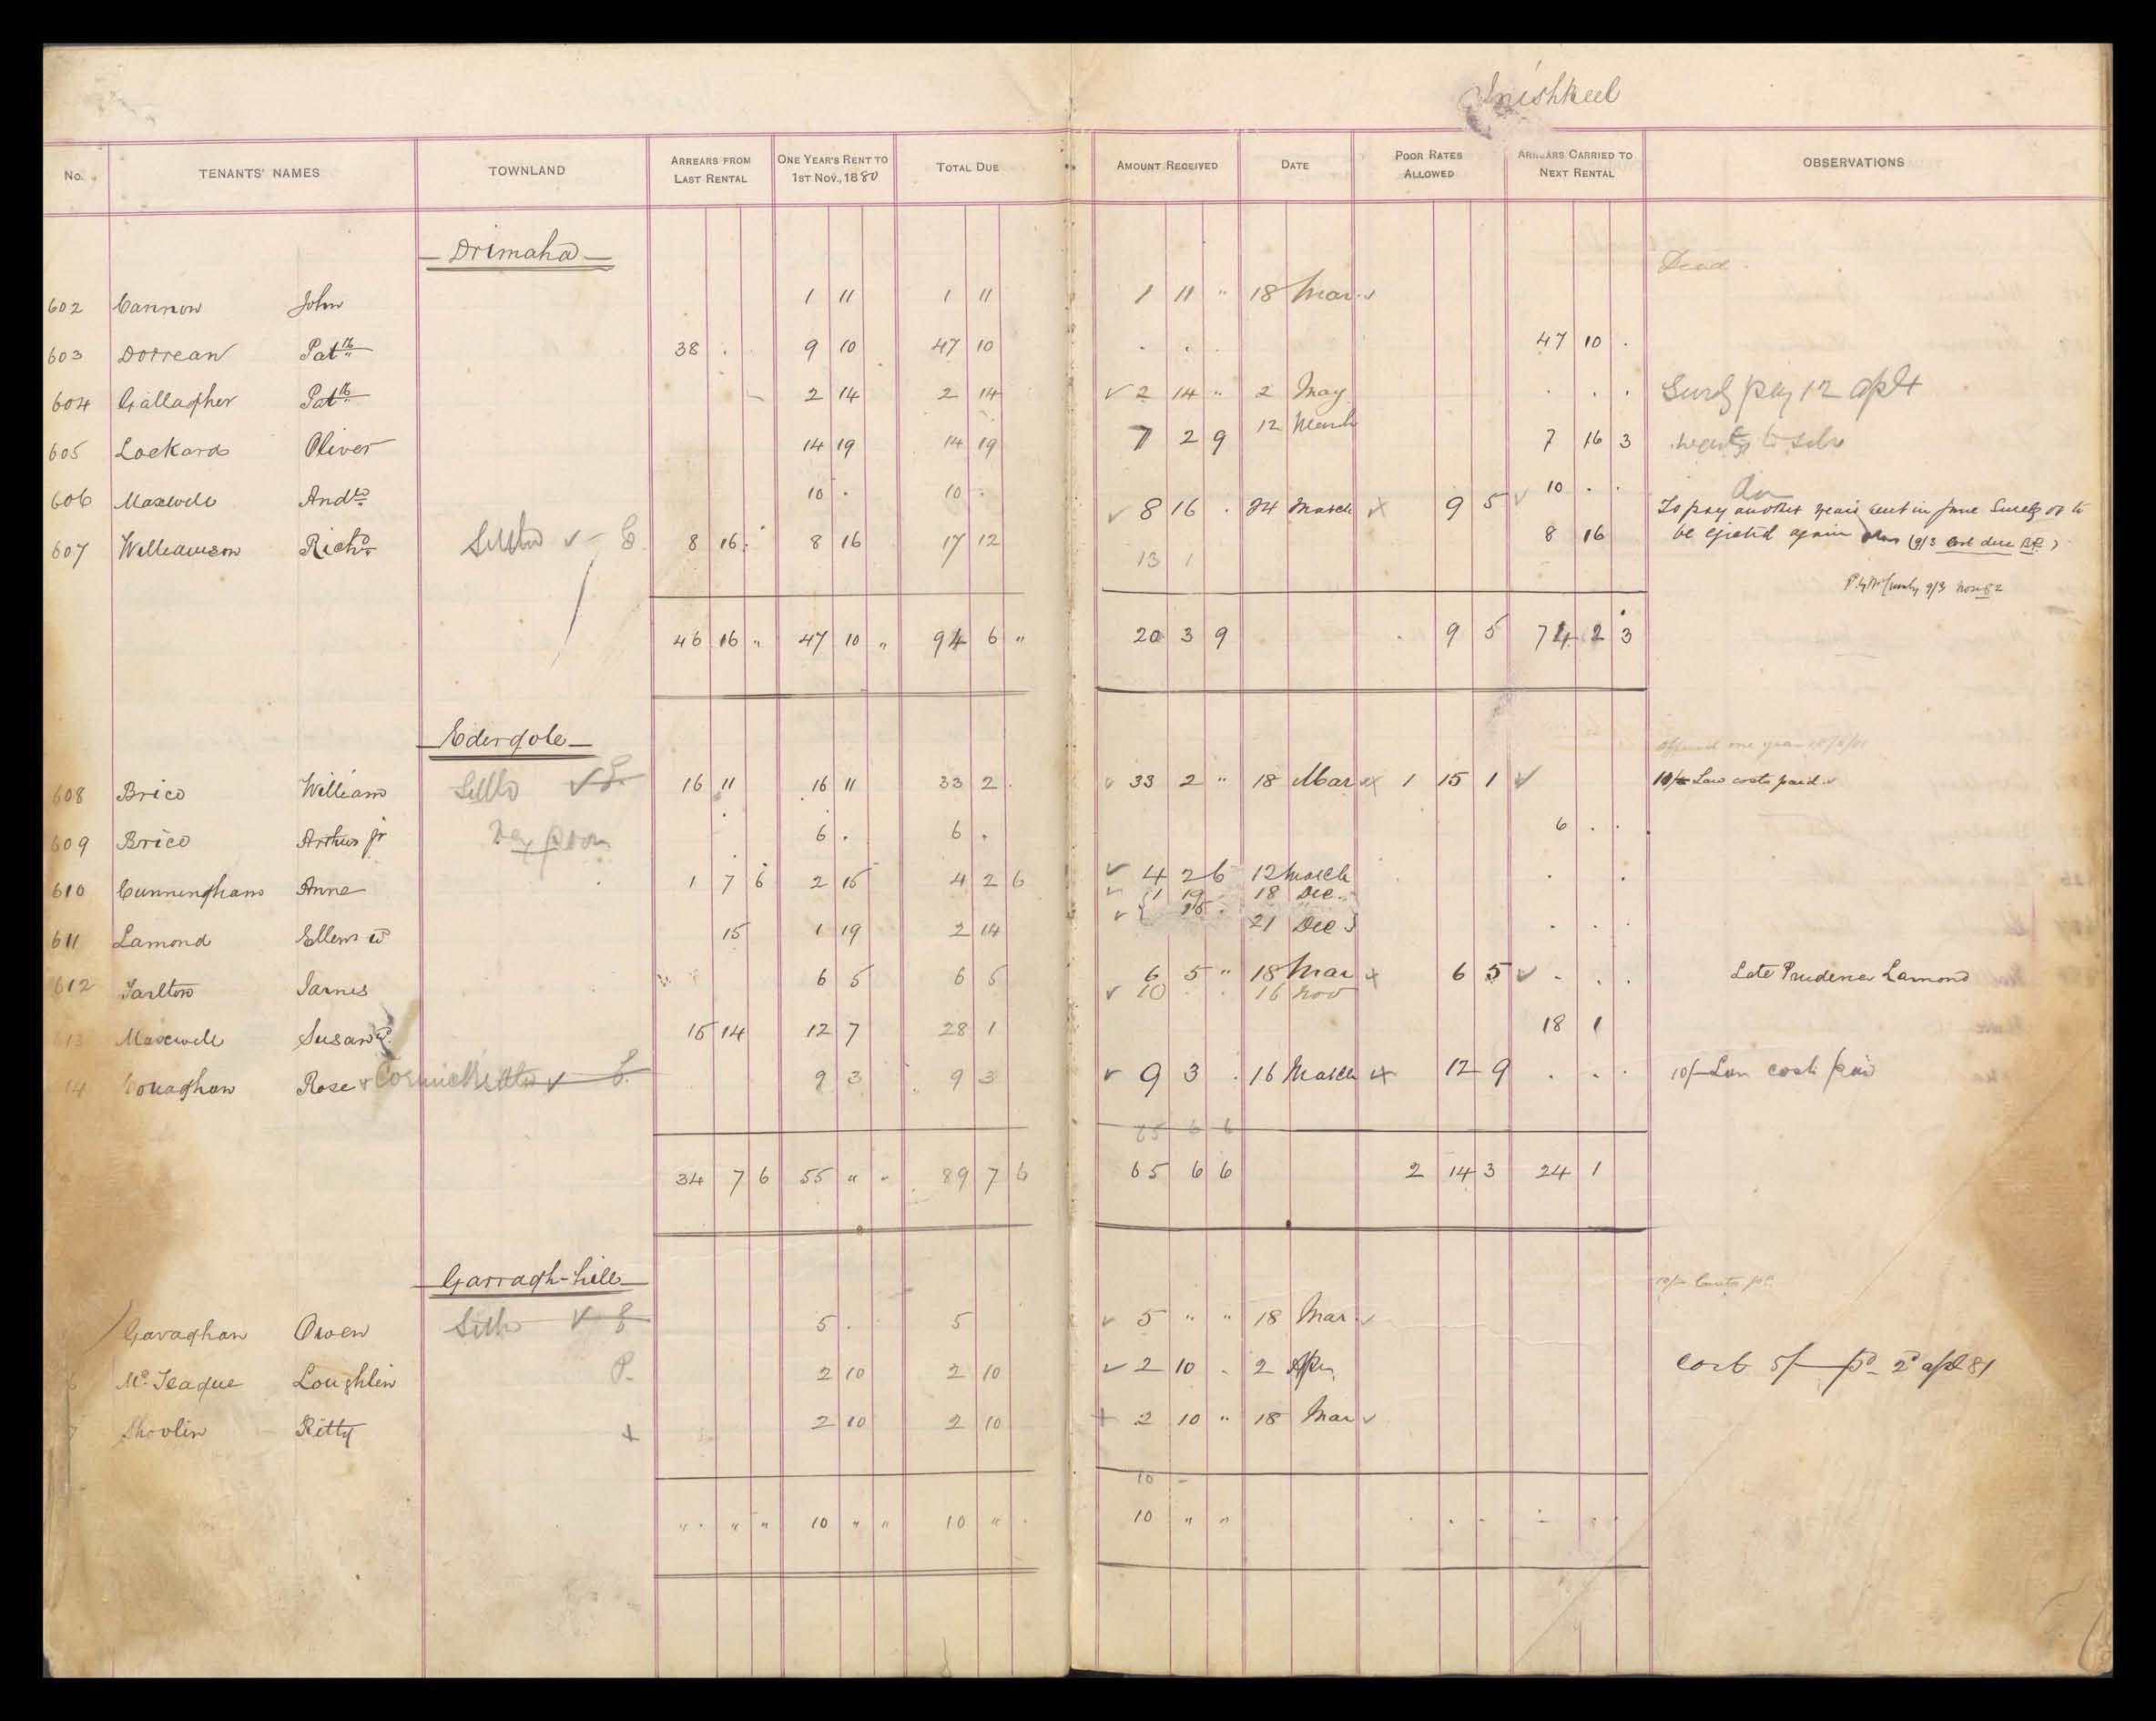 Inishkeel
No. TENANTS' NAMES TOWNLAND ARREARS FROM LAST RENTAL ONE YEAR'S RENT TO 1ST NOV., 1880 TOTAL DUE AMOUNT RECEIVED DATE POOR RATES ALLOWED ARREARS CARRIED TO NEXT RENTAL OBSERVATIONS
Drimaha
Dead
602 Cannon John 1 11 1 11 1 11 " 18 Mar
603 Dorrean Patk 38 . 9 10 47 10 47 10 .
604 Gallagher Patk 2 14 2 14 2 14 " 2 May Surely pay 12 Aplt
605 Lockard Oliver 14 19 14 19 7 2 9 12 March 7 16 3 wants to
606 Maxwell Andw 10 . 10 . 10 . .
607 Williamson Richd 8 16 8 16 17 12 8 16 . 24 March 9 5 8 16 To pay another years rent in June Surely or to
be ejected again (9/3 cost due B.P.)
13 1
9/3
46 16 " 47 10 " 94 6 " 20 3 9 9 5 74 2 3
Edergole
608 Brice William 16 11 16 11 33 2 33 2 " 18 Mar 1 15 1 10/- Law costs paid
609 Brice Arthur jr 6 . 6 . 6 . .
Very poor
610 Cunningham Anne 1 7 6 2 15 4 2 6 4 2 6 12 March
1 19 18 Dec
611 Lamond Ellen 15 1 19 2 14 15 . 21 Dec
612 Tarlton James 6 5 6 5 6 5 " 18 Mar 6 5 Late Prudence Lamond
613 Maxwell Susan 15 14 12 7 28 1 10 . . 16 Nov 18 1
14 Conaghan Rose & Cormick 9 3 9 3 9 3 . 16 March 12 9 10/- Law costs paid
65 6 6
34 7 6 55 " " 89 7 6 65 6 6 2 14 3 24 1
Garragh-hill
Gavaghan Owen 5 . 5 5 " " 18 Mar
6 McTeague Loughlin P. 2 10 2 10 2 10 . 2 Apr cost 5/- pd 2d Apl 81
7 Shovlin Kitty 2 10 2 10 2 10 " 18 Mar
10 -
10 " " 10 " 10 " "